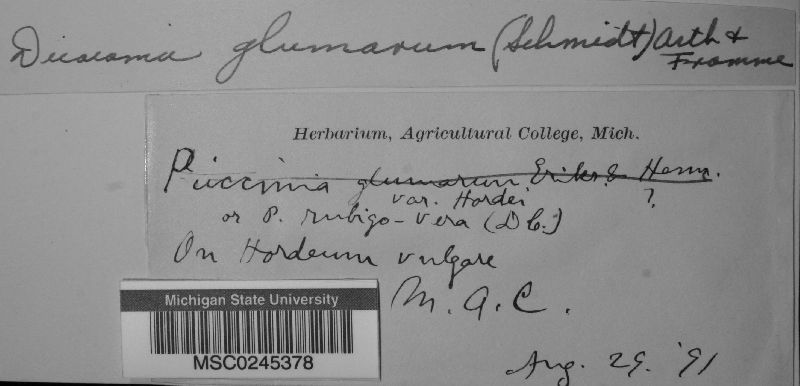 Dicaeoma glumarum (Schmidt) Arth &
Fromme
Herbarium, Agricultural College, Mich.
Puccinia glumarum Eriks. & Henn.
var. Hordei ?
or P. rubigo-vera (DC.)
On Hordeum vulgare
M. A. C.
Aug. 29. '91
Michigan State University
MSC0245378